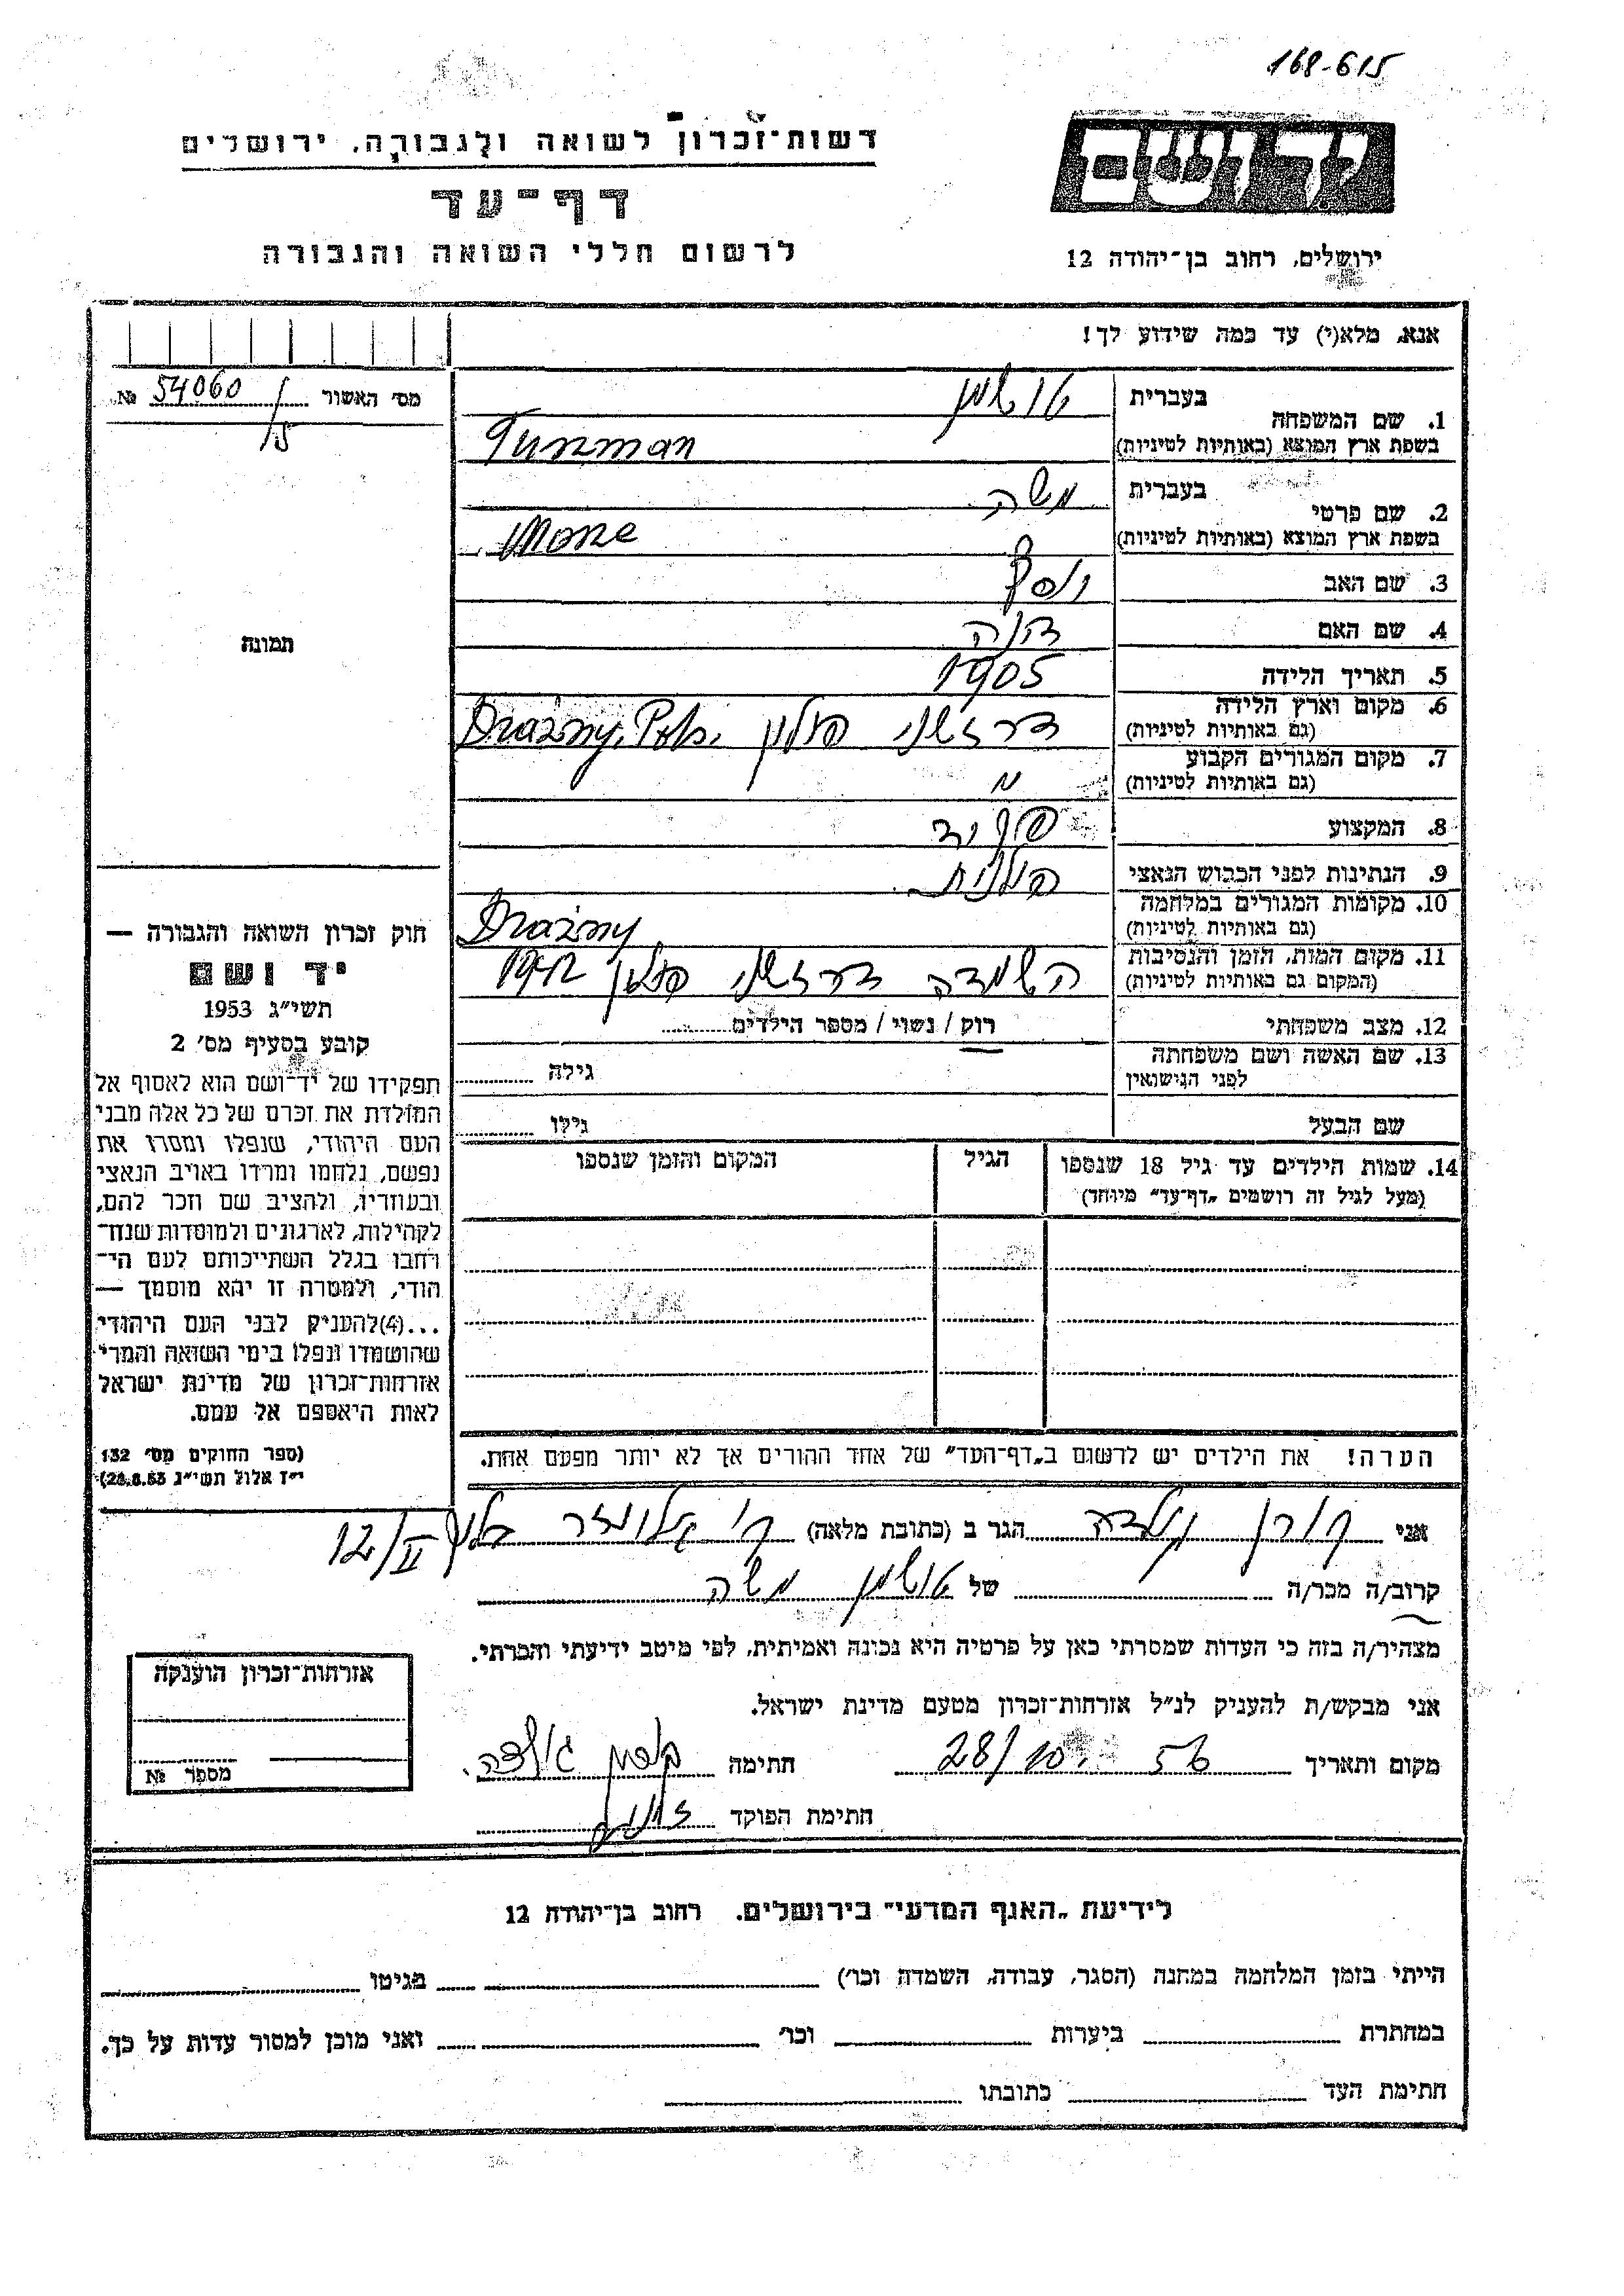 168-615
יד ושם
רשות־זכרון לשואה ולגבורה, ירושלים
דף־עד
לרשום חללי השואה והגבורה
ירושלים, רחוב בן־יהודה 12
אנא, מלא(י) עד כמה שידוע לך!
מס' האשור 54060 №
/15
1. שם המשפחה
בעברית טושמן
בשפת ארץ המוצא (באותיות לטיניות) Tuszman
2. שם פרטי
בעברית משה
בשפת ארץ המוצא (באותיות לטיניות)
3. שם האב יוסף
4. שם האם
5. תאריך הלידה 1905
6. מקום וארץ הלידה
(גם באותיות לטיניות) דרזשני פולין Drażny,
7. מקום המגורים הקבוע
(גם באותיות לטיניות) "
8. המקצוע
9. הנתינות לפני הכבוש הנאצי פולנית
10. מקומות המגורים במלחמה
(גם באותיות לטיניות) Drażny
11. מקום המות, הזמן והנסיבות
(המקום גם באותיות לטיניות) השמדה דרזשני פולין 1942
12. מצב משפחתי רוק / נשוי / מספר הילדים
13. שם האשה ושם משפחתה
לפני הנישואין גילה
שם הבעל גילו
14. שמות הילדים עד גיל 18 שנספו
(מעל לגיל זה רושמים „דף־עד” מיוחד)
הגיל
המקום והזמן שנספו
הערה! את הילדים יש לרשום ב„דף־העד” של אחד ההורים אך לא יותר מפעם אחת.
תמונה
חוק זכרון השואה והגבורה —
יד ושם
תשי"ג 1953
קובע בסעיף מס' 2
תפקידו של יד־ושם הוא לאסוף אל
המולדת את זכרם של כל אלה מבני
העם היהודי, שנפלו ומסרו את
נפשם, נלחמו ומרדו באויב הנאצי
ובעוזריו, ולהציב שם וזכר להם,
לקהילות, לארגונים ולמוסדות שנח־
רבו בגלל השתייכותם לעם הי־
הודי, ולמטרה זו יהא מוסמך —
...(4)להעניק לבני העם היהודי
שהושמדו ונפלו בימי השואה והמרי
אזרחות־זכרון של מדינת ישראל
לאות היאספם אל עמם.
(ספר החוקים מס' 132
י"ז אלול תשי"ג 28.8.53)
אני הגר ב (כתובת מלאה) 12/II
קרוב/ה מכר/ה של טושמן משה
מצהיר/ה בזה כי העדות שמסרתי כאן על פרטיה היא נכונה ואמיתית, לפי מיטב ידיעתי והכרתי.
אני מבקש/ת להעניק לנ"ל אזרחות־זכרון מטעם מדינת ישראל.
מקום ותאריך 28/10 56 חתימה
חתימת הפוקד
אזרחות־זכרון הוענקה
מספר №
לידיעת „האגף המדעי” בירושלים, רחוב בן־יהודה 12
הייתי בזמן המלחמה במחנה (הסגר, עבודה, השמדה וכו') בגיטו
במחתרת ביערות וכו' ואני מוכן למסור עדות על כך.
חתימת העד כתובתו